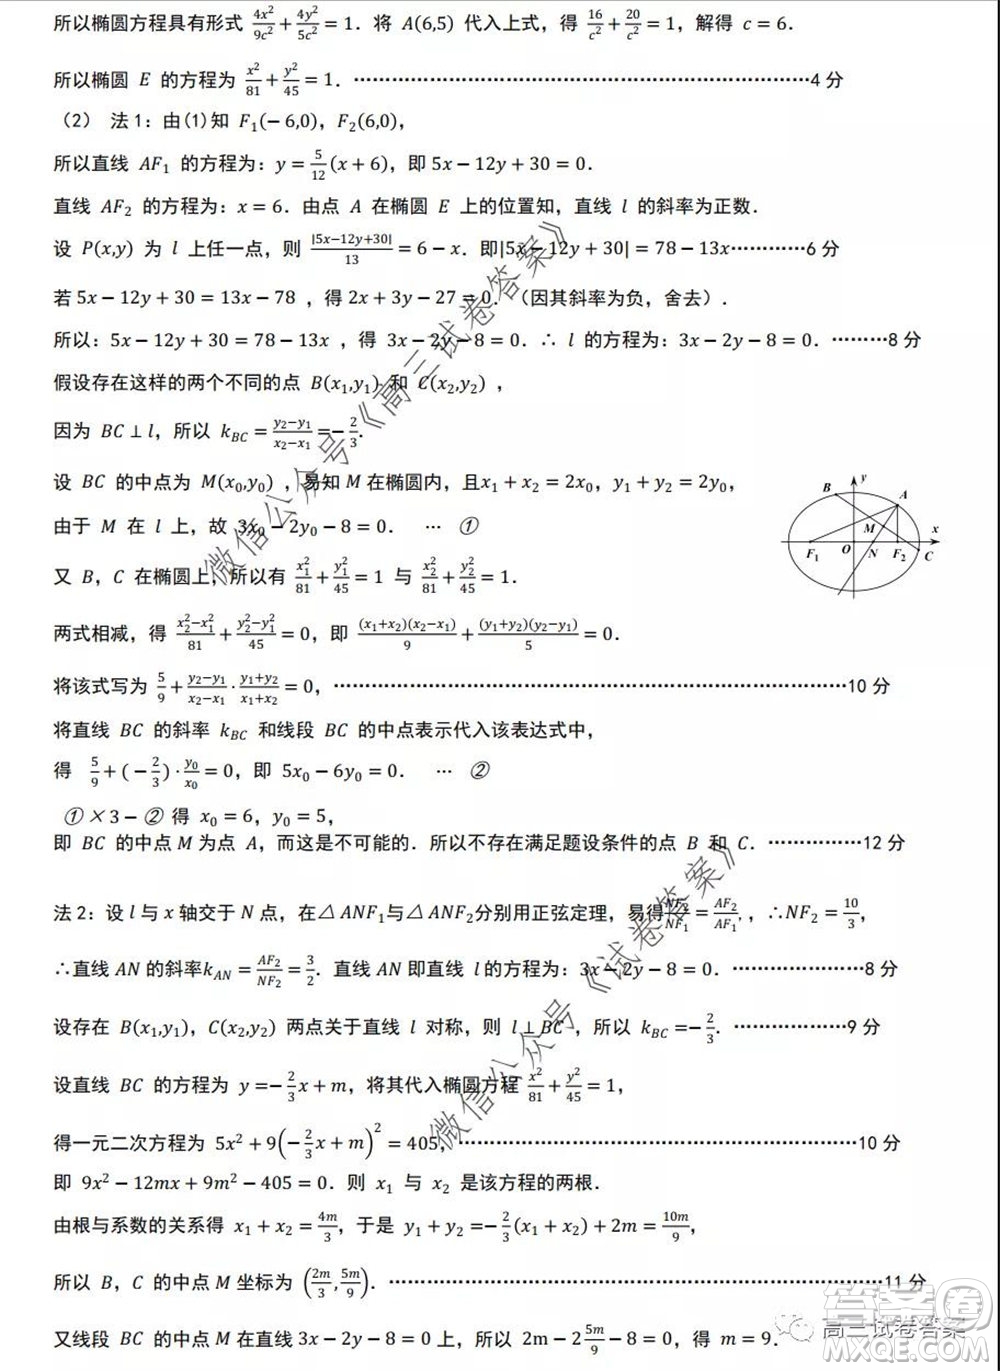 所以椭圆方程具有形式 4x²/9c² + 4y²/5c² = 1．将 A(6,5) 代入上式，得 16/c² + 20/c² = 1，解得 c = 6．
所以椭圆 E 的方程为 x²/81 + y²/45 = 1．…………………………………………………………………4 分
（2） 法1：由(1)知 F₁(−6,0)，F₂(6,0)，
所以直线 AF₁ 的方程为：y = 5/12 (x + 6)，即 5x − 12y + 30 = 0．
直线 AF₂ 的方程为：x = 6．由点 A 在椭圆 E 上的位置知，直线 l 的斜率为正数．
设 P(x,y) 为 l 上任一点，则 |5x−12y+30|/13 = 6 − x．即|5x − 12y + 30| = 78 − 13x…………6 分
若 5x − 12y + 30 = 13x − 78 ，得 2x + 3y − 27 = 0．（因其斜率为负，舍去）．
所以：5x − 12y + 30 = 78 − 13x ，得 3x − 2y − 8 = 0．∴ l 的方程为：3x − 2y − 8 = 0．………8 分
假设存在这样的两个不同的点 B(x₁,y₁) 和 C(x₂,y₂) ，
因为 BC ⊥ l，所以 k_BC = (y₂−y₁)/(x₂−x₁) = −2/3．
设 BC 的中点为 M(x₀,y₀) ，易知 M 在椭圆内，且x₁ + x₂ = 2x₀，y₁ + y₂ = 2y₀，
由于 M 在 l 上，故 3x₀ − 2y₀ − 8 = 0． … ①
又 B，C 在椭圆上，所以有 x₁²/81 + y₁²/45 = 1 与 x₂²/81 + y₂²/45 = 1．
两式相减，得 (x₂²−x₁²)/81 + (y₂²−y₁²)/45 = 0，即 (x₁+x₂)(x₂−x₁)/9 + (y₁+y₂)(y₂−y₁)/5 = 0．
将该式写为 5/9 + (y₂−y₁)/(x₂−x₁) · (y₁+y₂)/(x₁+x₂) = 0，…………………………………………………………………10 分
将直线 BC 的斜率 k_BC 和线段 BC 的中点表示代入该表达式中，
得 5/9 + (−2/3) · y₀/x₀ = 0，即 5x₀ − 6y₀ = 0． … ②
①×3−② 得 x₀ = 6，y₀ = 5，
即 BC 的中点 M 为点 A，而这是不可能的．所以不存在满足题设条件的点 B 和 C．……………12 分
y
B
A
M
x
F₁
O
N
F₂
C
法2：设 l 与 x 轴交于 N 点，在△ANF₁与△ANF₂分别用正弦定理，易得NF₂/NF₁ = AF₂/AF₁，，∴NF₂ = 10/3，
∴直线 AN 的斜率k_AN = AF₂/NF₂ = 3/2．直线 AN 即直线 l 的方程为：3x − 2y − 8 = 0．………………8 分
设存在 B(x₁,y₁)，C(x₂,y₂) 两点关于直线 l 对称，则 l ⊥ BC ，所以 k_BC = −2/3．……………9 分
设直线 BC 的方程为 y = −2/3 x + m，将其代入椭圆方程 x²/81 + y²/45 = 1，
得一元二次方程为 5x² + 9(−2/3 x + m)² = 405，…………………………………………………………10 分
即 9x² − 12mx + 9m² − 405 = 0．则 x₁ 与 x₂ 是该方程的两根．
由根与系数的关系得 x₁ + x₂ = 4m/3，于是 y₁ + y₂ = −2/3 (x₁ + x₂) + 2m = 10m/9，
所以 B，C 的中点 M 坐标为 (2m/3, 5m/9)．………………………………………………………………………11 分
又线段 BC 的中点 M 在直线 3x − 2y − 8 = 0 上，所以 2m − 2 5m/9 − 8 = 0，得 m = 9．
微信公众号《高三试卷答案》
微信公众号《试卷答案》
高三试卷答案
答案圈